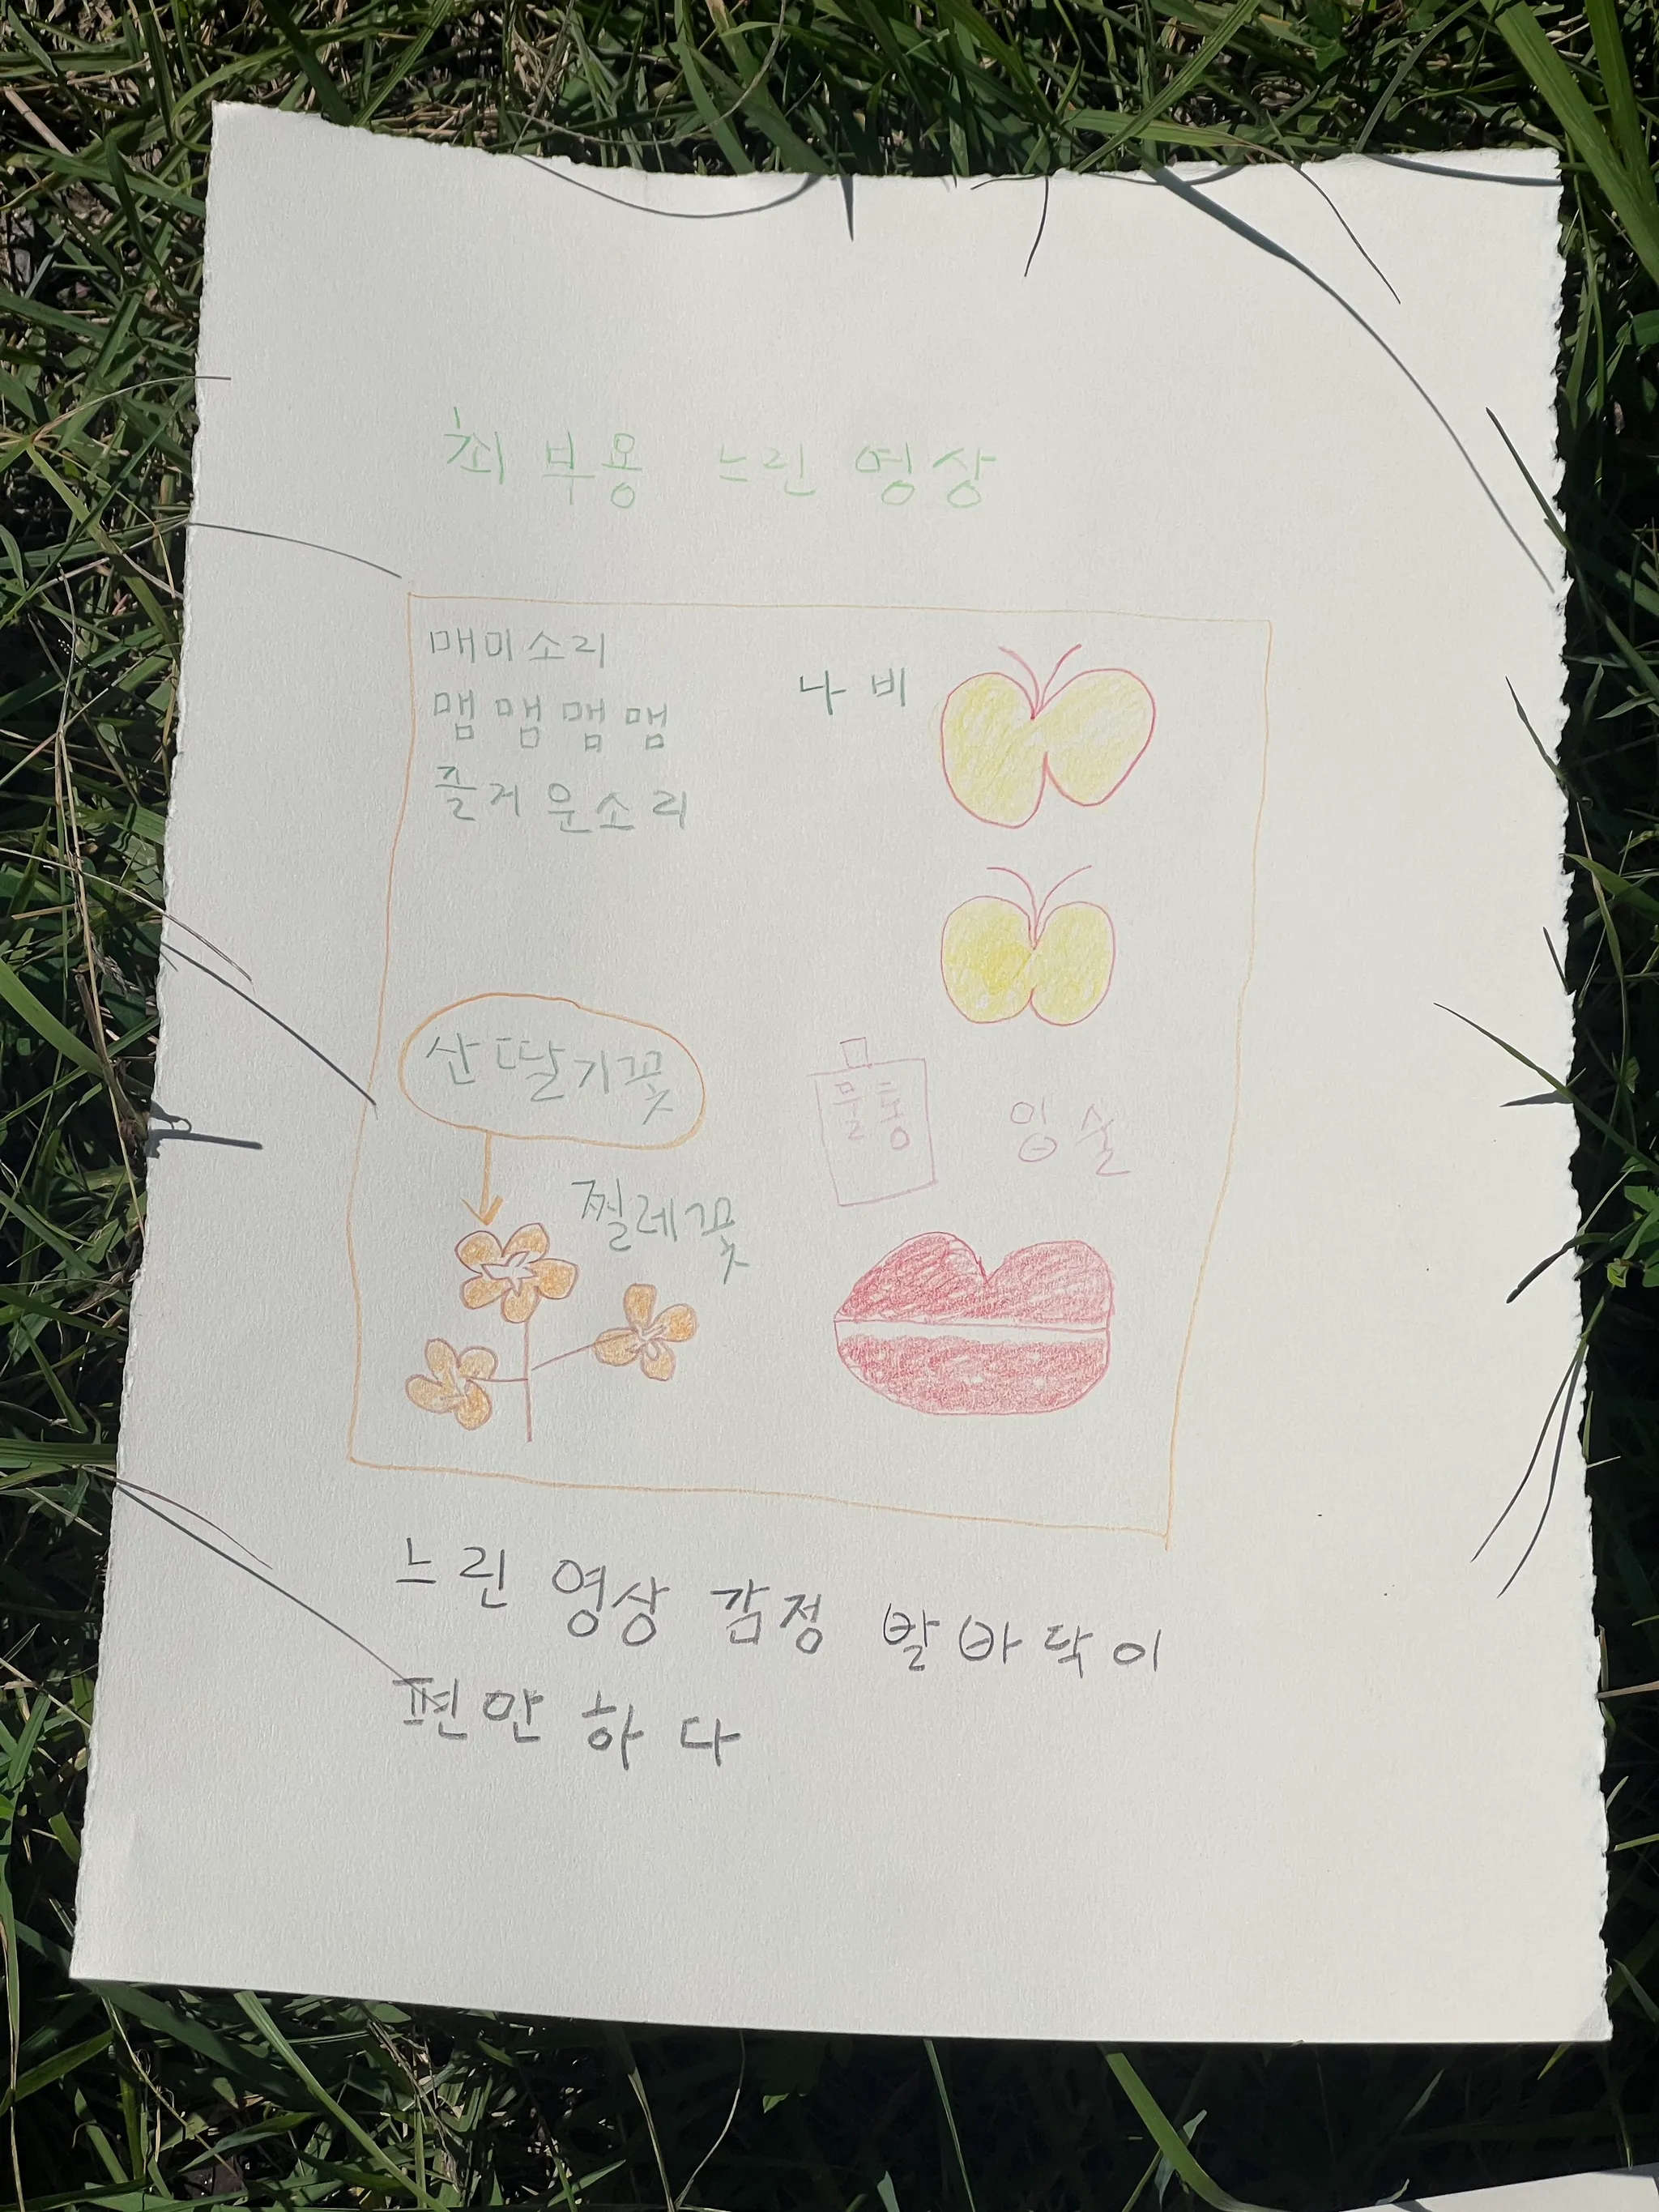 최부용 느린 영상
매미소리
맴맴맴맴
즐거운소리
나비
산딸기꽃
찔레꽃
물통
입술
느린 영상 감정 발바닥이
편안하다